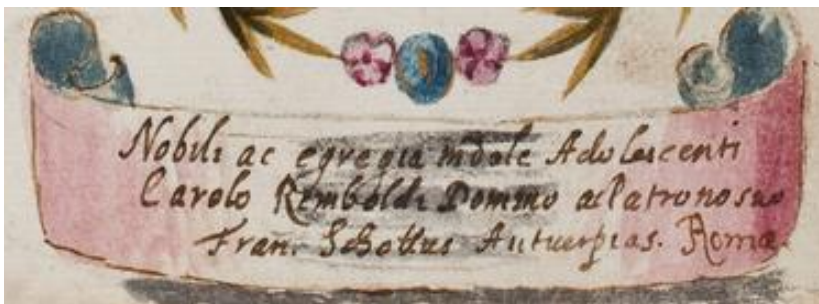 Nobili ac egregia indole Adolescenti
Carolo Remboldi Domino ac Patrono suo
Fran. Schottus Antuerpias. Romæ.